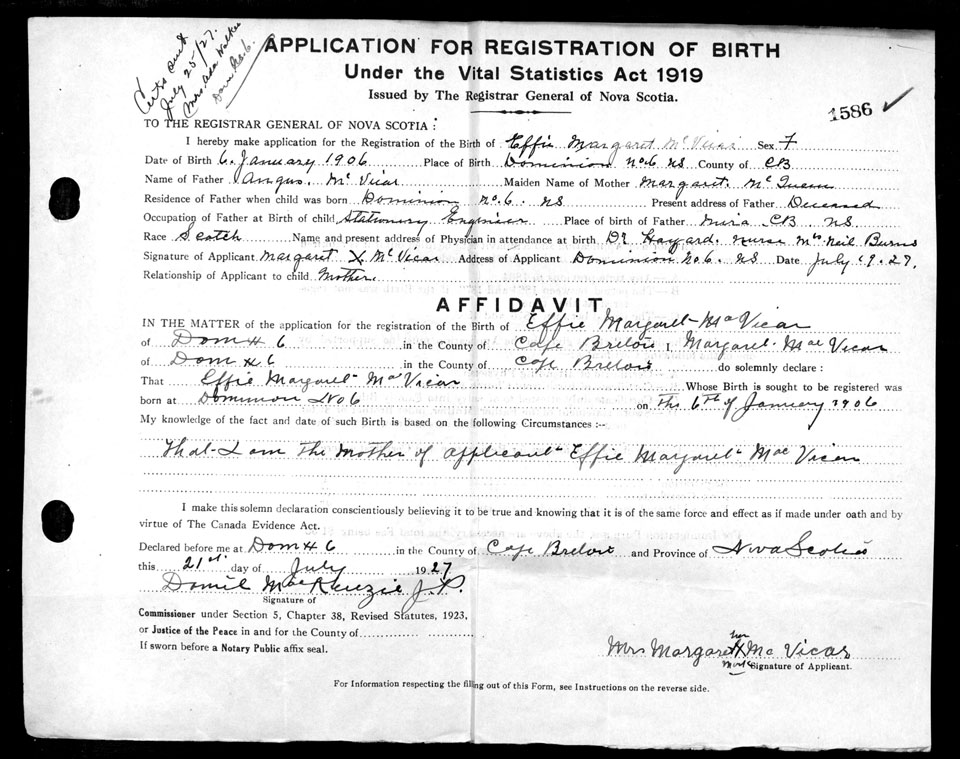 Certs sent
July 25/27.
Mrs Ada Walker
Dom No. 6.
APPLICATION FOR REGISTRATION OF BIRTH
Under the Vital Statistics Act 1919
Issued by The Registrar General of Nova Scotia.
1586 ✓
TO THE REGISTRAR GENERAL OF NOVA SCOTIA:
I hereby make application for the Registration of the Birth of Effie Margaret Mc Vicar Sex F
Date of Birth 6. January 1906 Place of Birth Dominion No. 6 NS County of CB
Name of Father Angus. Mc Vicar Maiden Name of Mother Margaret. Mc Queen
Residence of Father when child was born Dominion No. 6. NS Present address of Father Deceased
Occupation of Father at Birth of child Stationery Engineer Place of birth of Father Mira CB NS
Race Scotch Name and present address of Physician in attendance at birth Dr Hayard. nurse Mrs Neil Burns
Signature of Applicant Margaret X Mc Vicar Address of Applicant Dominion No 6. NS Date July 19. 27.
Relationship of Applicant to child Mother.
AFFIDAVIT
IN THE MATTER of the application for the registration of the Birth of Effie Margaret Mac Vicar
of Dom # 6 in the County of Cape Breton I, Margaret Mac Vicar
of Dom # 6 in the County of Cape Breton do solemnly declare:
That Effie Margaret Mac Vicar Whose Birth is sought to be registered was
born at Dominion No 6 on the 6th of January 1906
My knowledge of the fact and date of such Birth is based on the following Circumstances :--
That I am the Mother of applicant Effie Margaret Mac Vicar
I make this solemn declaration conscientiously believing it to be true and knowing that it is of the same force and effect as if made under oath and by
virtue of The Canada Evidence Act.
Declared before me at Dom # 6 in the County of Cape Breton and Province of Nova Scotia
this 21st day of July 1927
Daniel MacKenzie J.P.
Signature of
Commissioner under Section 5, Chapter 38, Revised Statutes, 1923,
or Justice of the Peace in and for the County of
If sworn before a Notary Public affix seal.
her
Mrs Margaret X Mac Vicar
mark
Signature of Applicant.
For Information respecting the filling out of this Form, see Instructions on the reverse side.